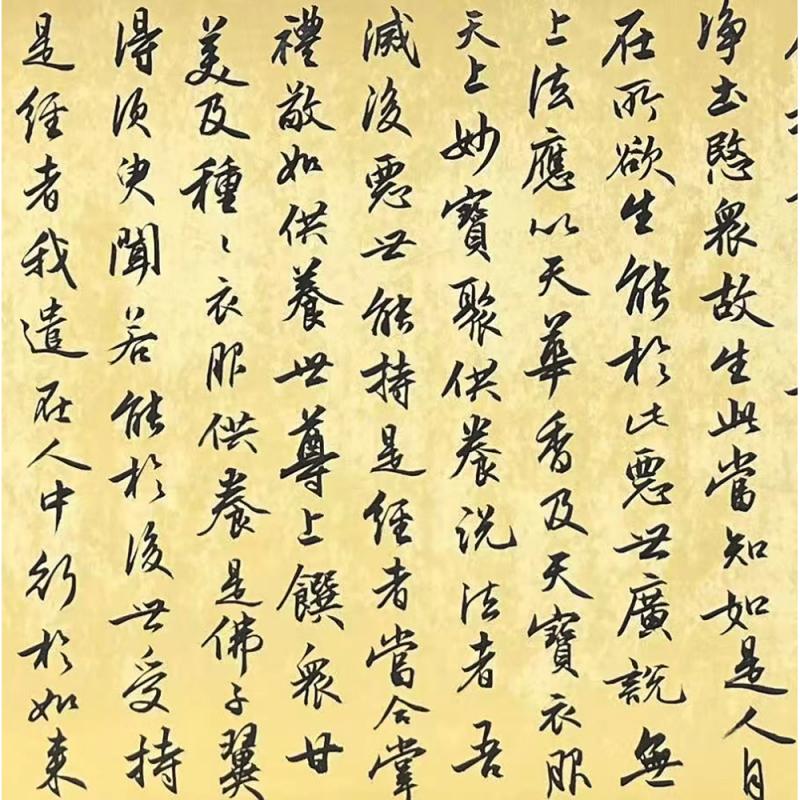 净土愍眾故生此當知如是人自
在所欲生能於此惡世廣說無
上法應以天華香及天寶衣服
天上妙寶聚供養說法者吾
滅後惡世能持是經者當合掌
禮敬如供養世尊上饌眾甘
美及種〻衣服供養是佛子冀
得須臾聞若能於後世受持
是經者我遣在人中行於如來